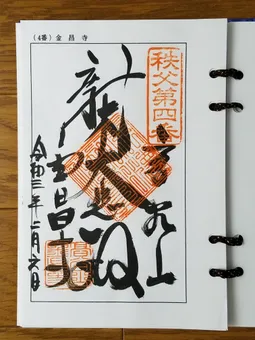 (4番) 金昌寺
秩父第四番
高谷山
新木大悲殿
金昌寺
令和三年二月六日